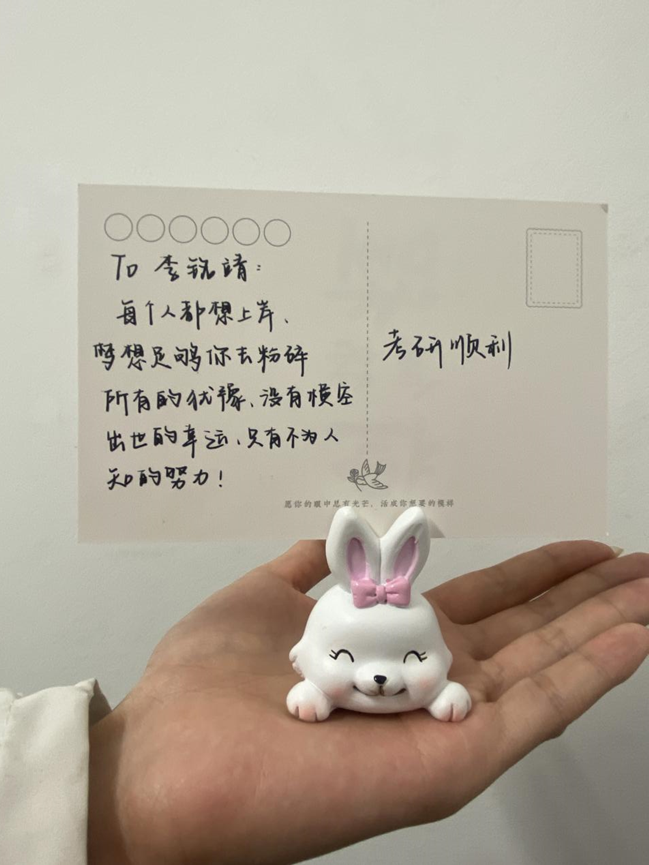 To 李锐靖：
每个人都想上岸、
梦想足够你去粉碎
所有的犹豫、没有横空
出世的幸运、只有不为人
知的努力！
考研顺利
愿你的眼中总有光芒，活成你想要的模样